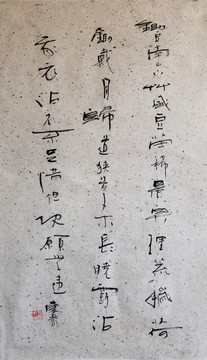 種豆南山下艸盛豆苗稀晨興理荒穢荷
鋤戴月歸道狹艸木長露沾
我衣沾不足惜但使願無違